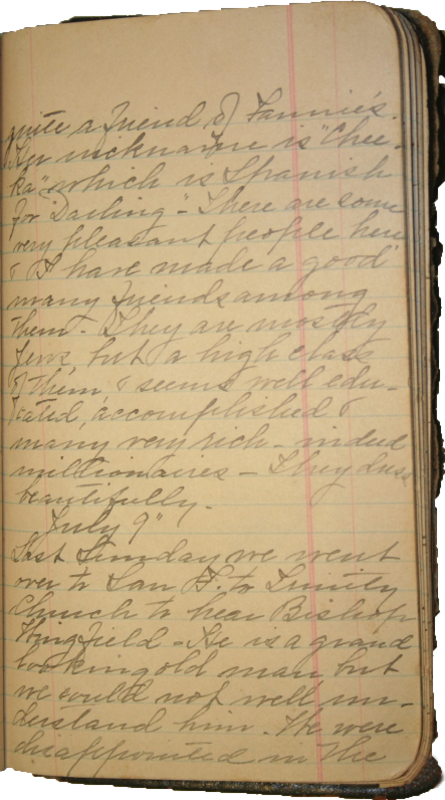 quite a friend of Fannie's.
Her nickname is "Chee-
ka" which is Spanish
for "Darling"- There are some
very pleasant people here
& I have made a good
many friends among
them- They are mostly
Jews, but a high class
of them, & seems well edu-
cated, accomplished &
many very rich- indeed
millionaires- They dress
beautifully.
July 9"
Last Sunday we went
over to San F. to Trinity
Church to hear Bishop
Wingfield- He is a grand
looking old man but
we could not well un-
derstand him. We were
disappointed in the